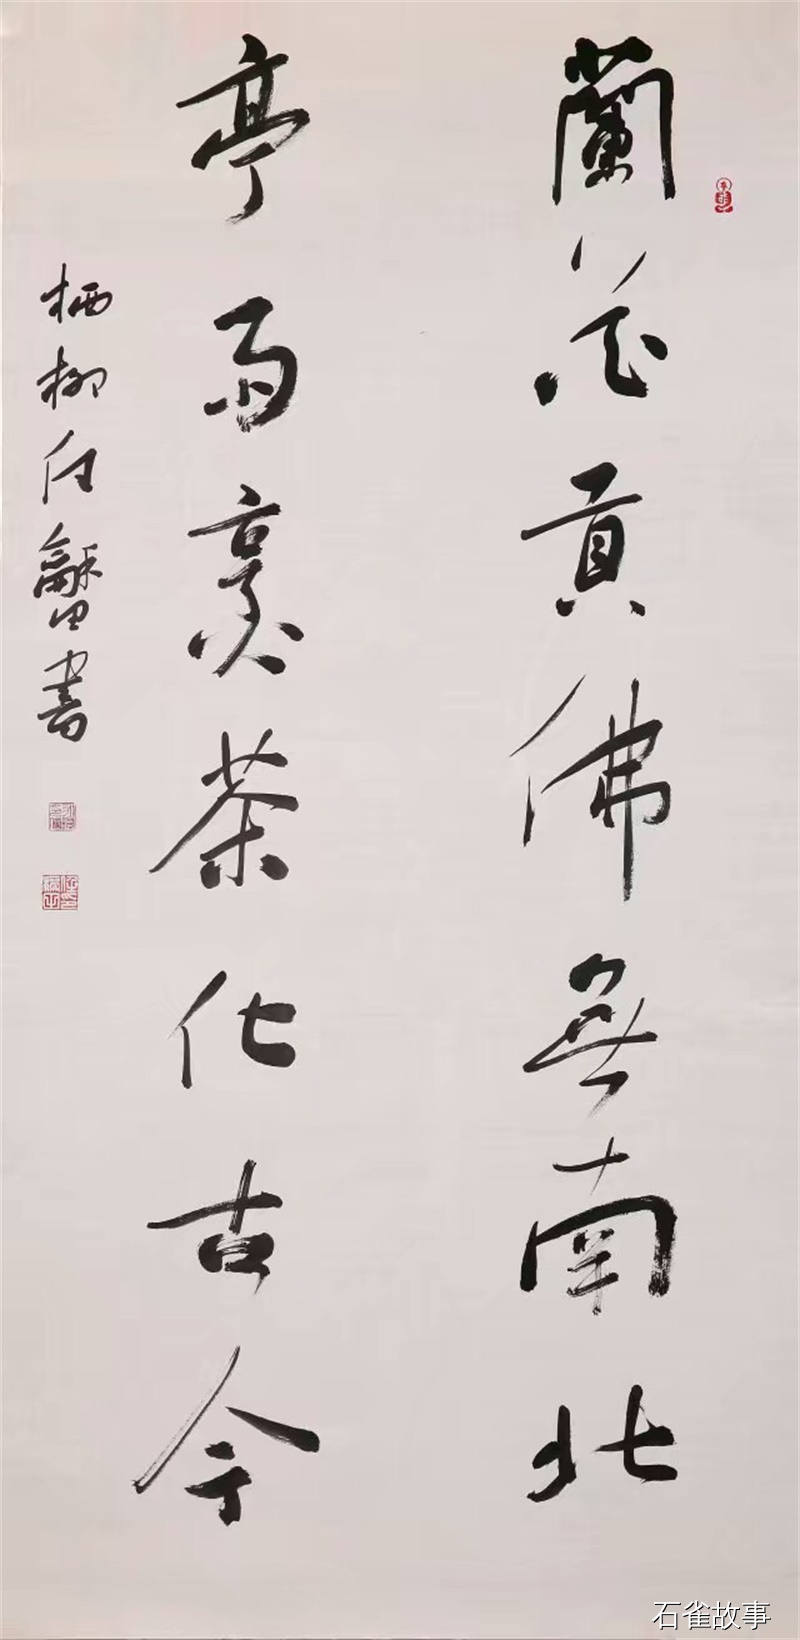 蘭花貢佛無南北
亭雨烹茶化古今
栖柳任龢书
石雀故事